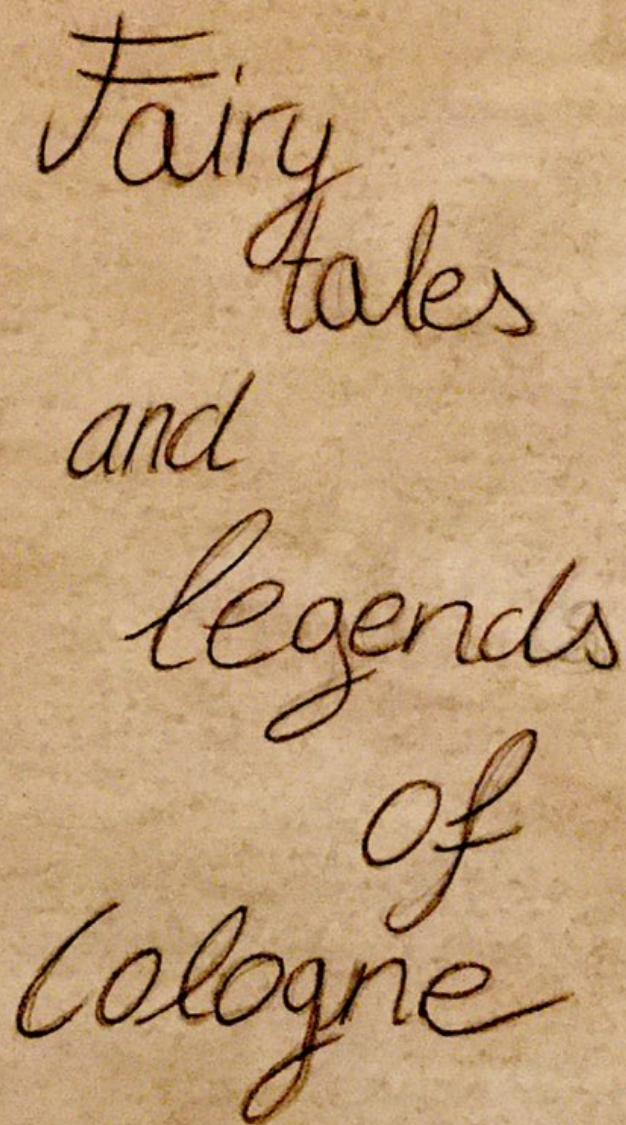 Fairy
tales
and
legends
of
Cologne